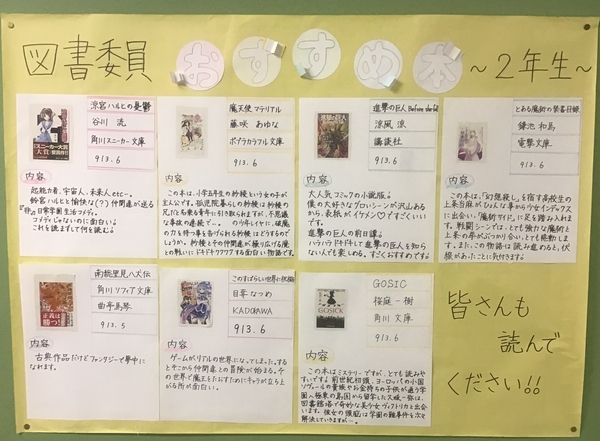 図書委員 おすすめ本 ~2年生~
涼宮ハルヒの憂鬱
谷川 流
角川スニーカー文庫
913.6
内容
超能力者、宇宙人、未来人etc…。
鈴宮ハルヒと愉快な(?)仲間達が送る
日常学園生活コメディ。
コメディでないのに面白い!
これを読まずして何を読む。
魔天使マテリアル
藤咲 あゆな
ポプラカラフル文庫
913.6
内容
この本は、小学五年生の紗綾という女の子が
主人公です。孤児院暮らしの紗綾は紗綾の
兄だと名乗る青年に引き取られますが、不思議
な事故の連続で…。
力を持つ事を告げられる紗綾はどうするので
しょうか。紗綾とその仲間達が繰り広げる魔
との戦いにドキドキワクワクする面白い物語です。
進撃の巨人 Before the fall
涼風 涼
講談社
913.6
内容
大人気コミックの小説版。
僕の大好きなプロレシーンが沢山ある
から、表紙がイケメンですごくいい
です。
進撃の巨人の前日譚。
ハラハラドキドキして進撃の巨人を知ら
ない人でも楽しめる。すごくおすすめです。
とある魔術の禁書目録
鎌池 和馬
電撃文庫
913.6
内容
この本は、「幻想殺し」を宿す高校生の
上条当麻がひょんな事から少女インデックス
に出会い、「魔術サイド」に足を踏み入れま
す。戦闘シーンでは、とても強力な魔術と
上条の拳がぶつかり合い、とても感動しま
す。またこの物語は読み進めると、伏
線があったことに気付きます。
南総里見八犬伝
角川ソフィア文庫
曲亭馬琴
913.5
内容
古典作品だけどファンタジーで夢中に
なれます。
このすばらしい世界に祝福を
暁 なつめ
KADOKAWA
913.6
内容
ゲームがリアルの世界になってしまった。する
とそこから仲間達との冒険が始まる。そ
の世界で魔王をたおすためにキャラが立ち上
がる所が面白い。
GOSIC
桜庭 一樹
角川文庫
913.6
内容
この本はミステリーですが、とても読みや
すいです。前世紀初頭、ヨーロッパの小国
ソヴュールの貴族やお金持ちの子供が通う学
園へ極東の島国から留学した久城一弥は、
図書館塔で奇妙な美少女ヴィクトリカと出会
います。彼女の頭脳は学園の難事件を次々
解決していきますが…。
皆さんも
読んで
ください!!